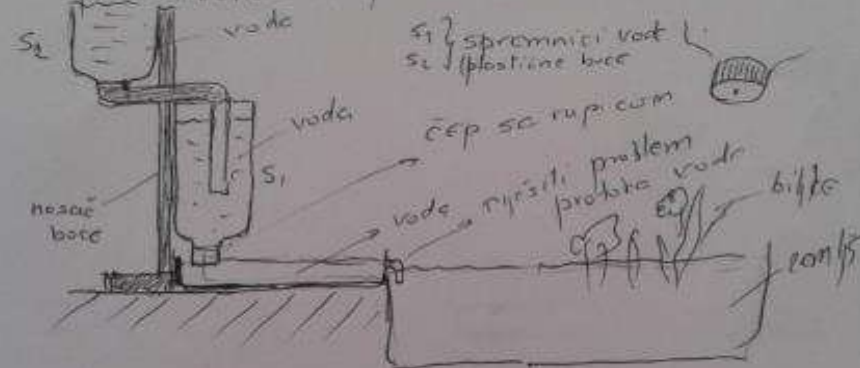 S2
voda
S1 } spremnici vode
S2 (plastične boce
voda
S1
čep sa rupicom
nosač
boce
voda
riješiti problem
protoka vode
biljke
zemlja